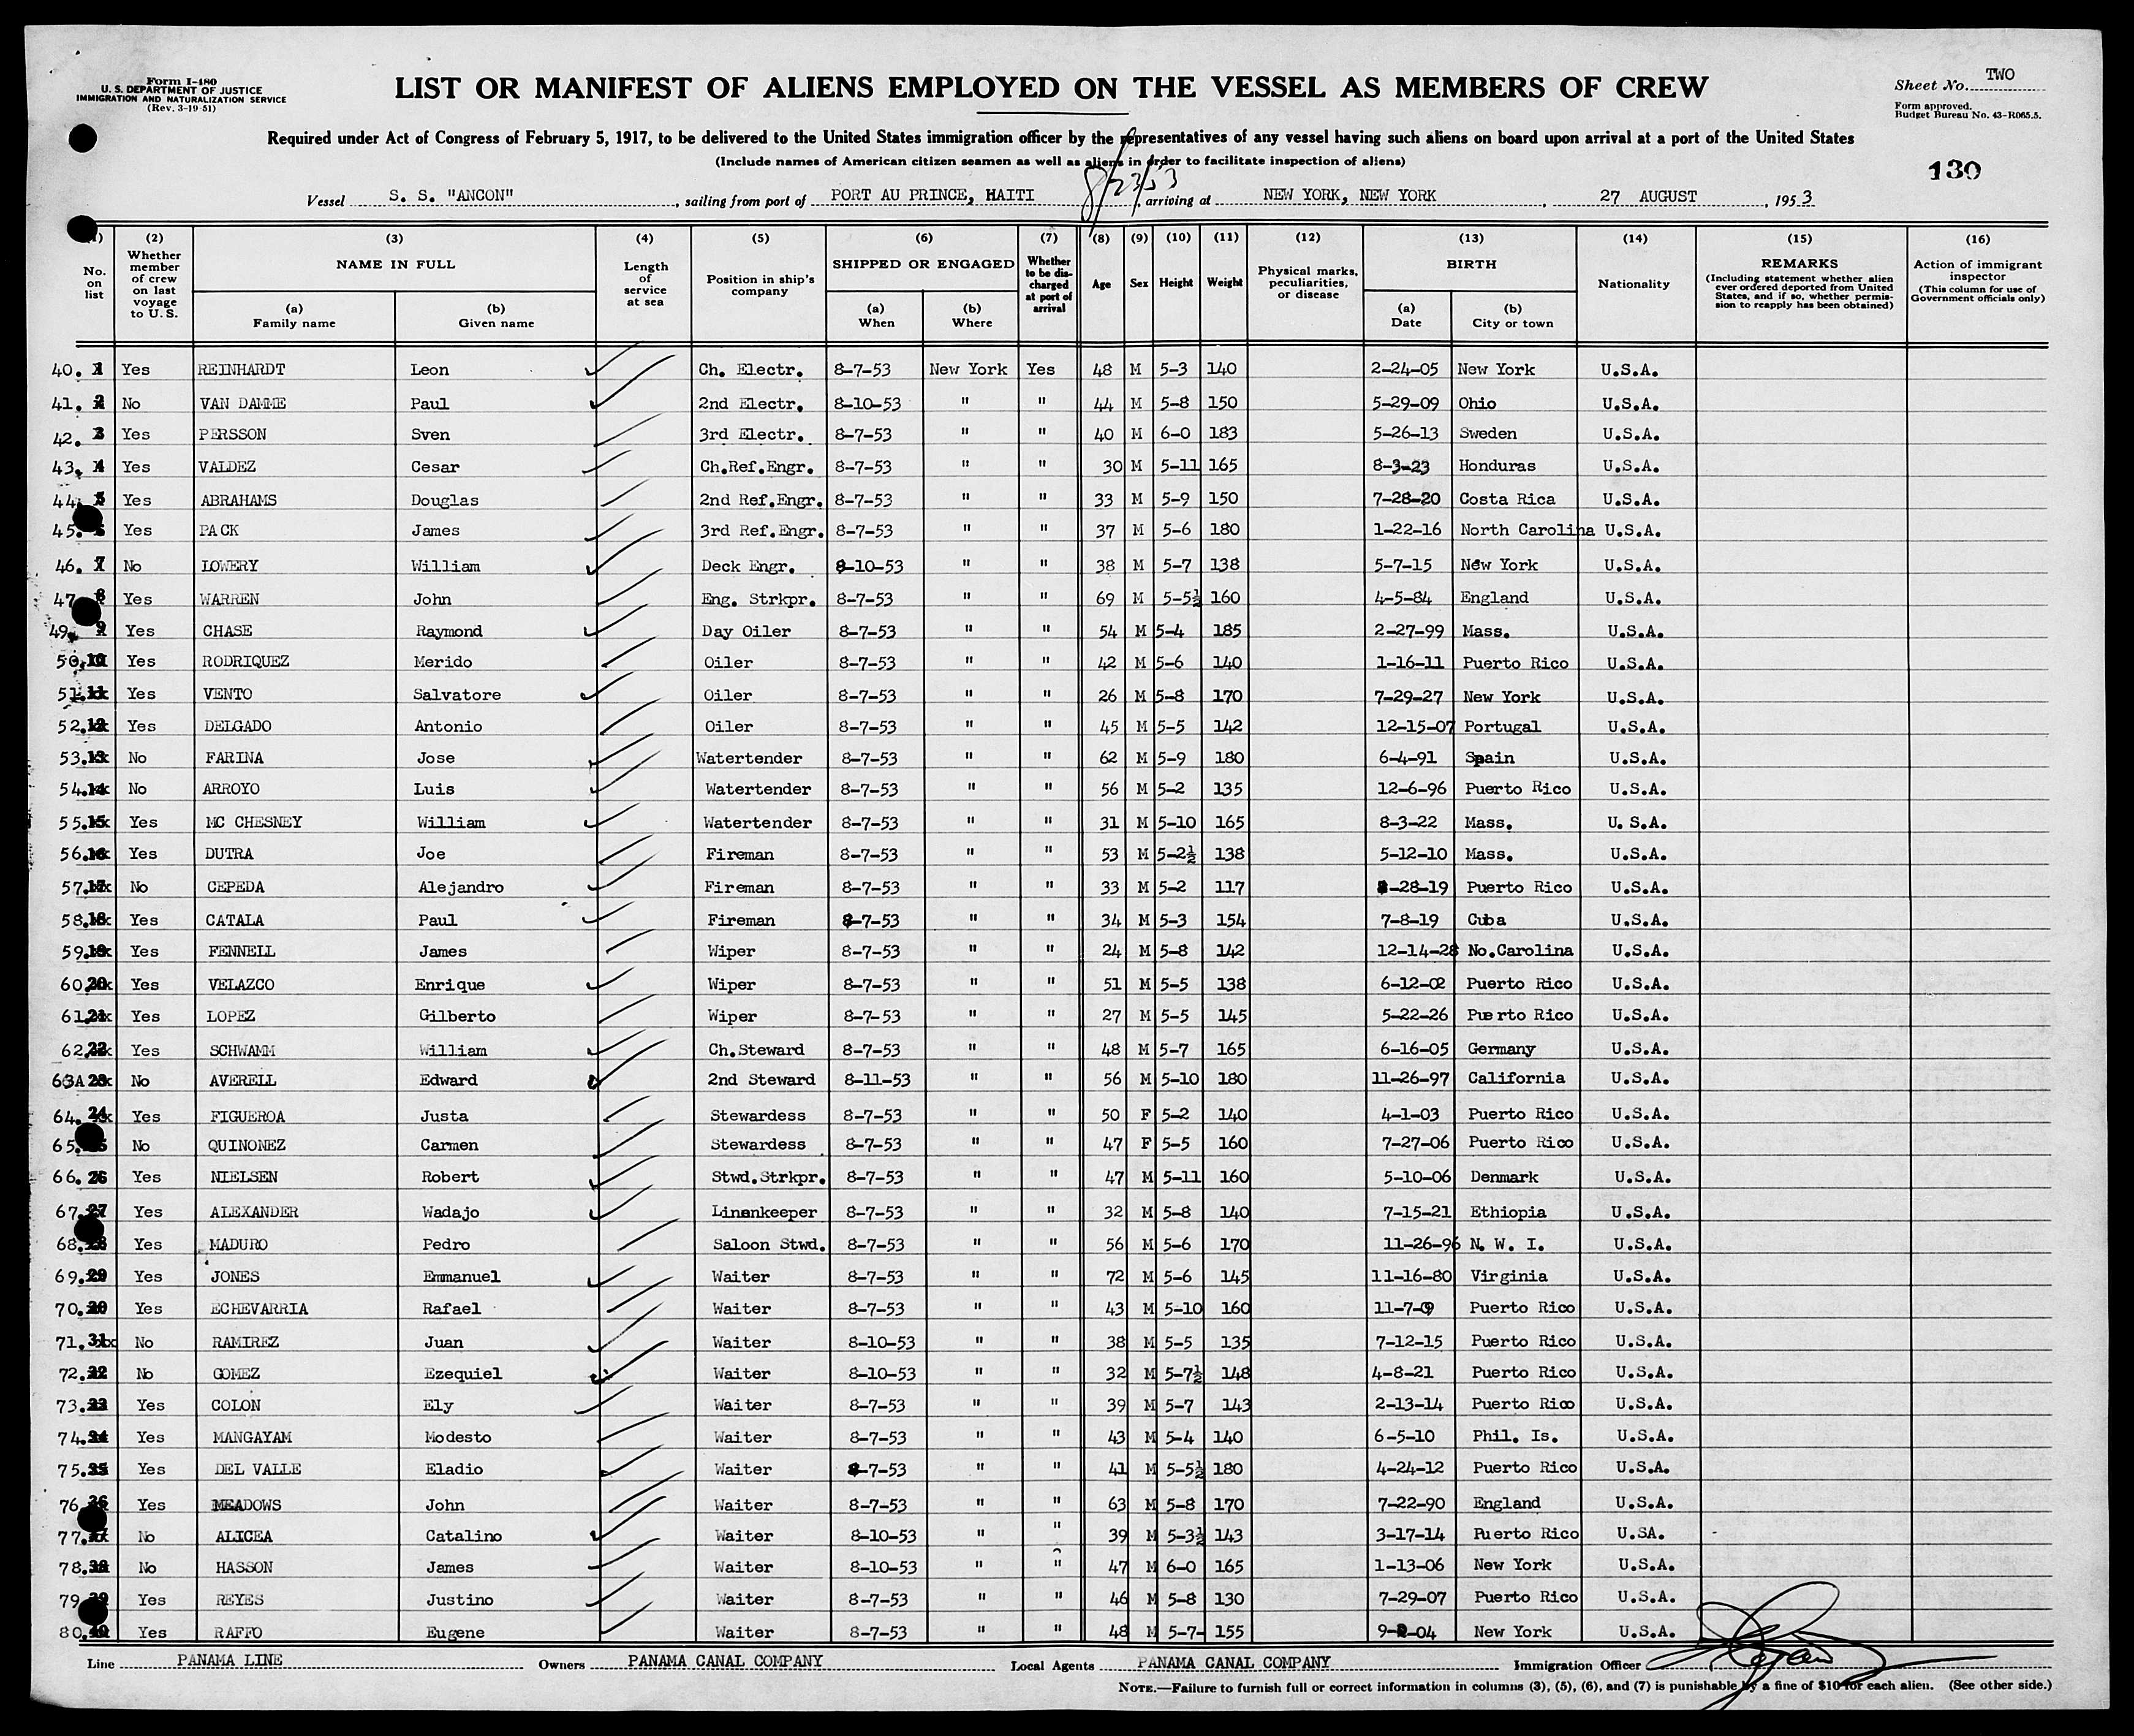 Form I-480
U. S. DEPARTMENT OF JUSTICE
IMMIGRATION AND NATURALIZATION SERVICE
(Rev. 3-19-51)
LIST OR MANIFEST OF ALIENS EMPLOYED ON THE VESSEL AS MEMBERS OF CREW
Sheet No. TWO
Form approved.
Budget Bureau No. 43-R065.5.
Required under Act of Congress of February 5, 1917, to be delivered to the United States immigration officer by the representatives of any vessel having such aliens on board upon arrival at a port of the United States
(Include names of American citizen seamen as well as aliens in order to facilitate inspection of aliens)
130
8/23/53
Vessel S. S. "ANCON", sailing from port of PORT AU PRINCE, HAITI, arriving at NEW YORK, NEW YORK, 27 AUGUST, 1953
(1) No. on list
(2) Whether member of crew on last voyage to U. S.
(3) NAME IN FULL (a) Family name (b) Given name
(4) Length of service at sea
(5) Position in ship's company
(6) SHIPPED OR ENGAGED (a) When (b) Where
(7) Whether to be discharged at port of arrival
(8) Age
(9) Sex
(10) Height
(11) Weight
(12) Physical marks, peculiarities, or disease
(13) BIRTH (a) Date (b) City or town
(14) Nationality
(15) REMARKS (Including statement whether alien ever ordered deported from United States, and if so, whether permission to reapply has been obtained)
(16) Action of immigrant inspector (This column for use of Government officials only)
40. 1 Yes REINHARDT Leon Ch. Electr. 8-7-53 New York Yes 48 M 5-3 140 2-24-05 New York U.S.A.
41. 2 No VAN DAMME Paul 2nd Electr. 8-10-53 " " 44 M 5-8 150 5-29-09 Ohio U.S.A.
42. 3 Yes PERSSON Sven 3rd Electr. 8-7-53 " " 40 M 6-0 183 5-26-13 Sweden U.S.A.
43. 4 Yes VALDEZ Cesar Ch.Ref.Engr. 8-7-53 " " 30 M 5-11 165 8-3-23 Honduras U.S.A.
44. 5 Yes ABRAHAMS Douglas 2nd Ref.Engr. 8-7-53 " " 33 M 5-9 150 7-28-20 Costa Rica U.S.A.
45. Yes PACK James 3rd Ref.Engr. 8-7-53 " " 37 M 5-6 180 1-22-16 North Carolina U.S.A.
46. 7 No LOWERY William Deck Engr. 8-10-53 " " 38 M 5-7 138 5-7-15 New York U.S.A.
47. 8 Yes WARREN John Eng. Strkpr. 8-7-53 " " 69 M 5-5½ 160 4-5-84 England U.S.A.
49. 9 Yes CHASE Raymond Day Oiler 8-7-53 " " 54 M 5-4 185 2-27-99 Mass. U.S.A.
50. 10 Yes RODRIQUEZ Merido Oiler 8-7-53 " " 42 M 5-6 140 1-16-11 Puerto Rico U.S.A.
51. 11 Yes VENTO Salvatore Oiler 8-7-53 " " 26 M 5-8 170 7-29-27 New York U.S.A.
52. 12 Yes DELGADO Antonio Oiler 8-7-53 " " 45 M 5-5 142 12-15-07 Portugal U.S.A.
53. 13 No FARINA Jose Watertender 8-7-53 " " 62 M 5-9 180 6-4-91 Spain U.S.A.
54. 14 No ARROYO Luis Watertender 8-7-53 " " 56 M 5-2 135 12-6-96 Puerto Rico U.S.A.
55. 15 Yes MC CHESNEY William Watertender 8-7-53 " " 31 M 5-10 165 8-3-22 Mass. U. S.A.
56. 16 Yes DUTRA Joe Fireman 8-7-53 " " 53 M 5-2½ 138 5-12-10 Mass. U.S.A.
57. 17 No CEPEDA Alejandro Fireman 8-7-53 " " 33 M 5-2 117 -28-19 Puerto Rico U.S.A.
58. 18 Yes CATALA Paul Fireman 8-7-53 " " 34 M 5-3 154 7-8-19 Cuba U.S.A.
59. 19 Yes FENNELL James Wiper 8-7-53 " " 24 M 5-8 142 12-14-28 No.Carolina U.S.A.
60. 20 Yes VELAZCO Enrique Wiper 8-7-53 " " 51 M 5-5 138 6-12-02 Puerto Rico U.S.A.
61. 21 Yes LOPEZ Gilberto Wiper 8-7-53 " " 27 M 5-5 145 5-22-26 Puerto Rico U.S.A.
62. 22 Yes SCHWAMM William Ch.Steward 8-7-53 " " 48 M 5-7 165 6-16-05 Germany U.S.A.
63A 23 No AVERELL Edward 2nd Steward 8-11-53 " " 56 M 5-10 180 11-26-97 California U.S.A.
64. 24 Yes FIGUEROA Justa Stewardess 8-7-53 " " 50 F 5-2 140 4-1-03 Puerto Rico U.S.A.
65. No QUINONEZ Carmen Stewardess 8-7-53 " " 47 F 5-5 160 7-27-06 Puerto Rico U.S.A.
66. 26 Yes NIELSEN Robert Stwd.Strkpr. 8-7-53 " " 47 M 5-11 160 5-10-06 Denmark U.S.A.
67. 27 Yes ALEXANDER Wadajo Linenkeeper 8-7-53 " " 32 M 5-8 140 7-15-21 Ethiopia U.S.A.
68. Yes MADURO Pedro Saloon Stwd. 8-7-53 " " 56 M 5-6 170 11-26-96 N. W. I. U.S.A.
69. 29 Yes JONES Emmanuel Waiter 8-7-53 " " 72 M 5-6 145 11-16-80 Virginia U.S.A.
70. 30 Yes ECHEVARRIA Rafael Waiter 8-7-53 " " 43 M 5-10 160 11-7-09 Puerto Rico U.S.A.
71. 31 No RAMIREZ Juan Waiter 8-10-53 " " 38 M 5-5 135 7-12-15 Puerto Rico U.S.A.
72. 32 No GOMEZ Ezequiel Waiter 8-10-53 " " 32 M 5-7½ 148 4-8-21 Puerto Rico U.S.A.
73. 33 Yes COLON Ely Waiter 8-7-53 " " 39 M 5-7 143 2-13-14 Puerto Rico U.S.A.
74. 34 Yes MANGAYAM Modesto Waiter 8-7-53 " " 43 M 5-4 140 6-5-10 Phil. Is. U.S.A.
75. 35 Yes DEL VALLE Eladio Waiter 8-7-53 " " 41 M 5-5½ 180 4-24-12 Puerto Rico U.S.A.
76. 36 Yes MEADOWS John Waiter 8-7-53 " " 63 M 5-8 170 7-22-90 England U.S.A.
77. No ALICEA Catalino Waiter 8-10-53 " " 39 M 5-3½ 143 3-17-14 Puerto Rico U.SA.
78. 38 No HASSON James Waiter 8-10-53 " " 47 M 6-0 165 1-13-06 New York U.S.A.
79. 39 Yes REYES Justino Waiter 8-7-53 " " 46 M 5-8 130 7-29-07 Puerto Rico U.S.A.
80. 40 Yes RAFFO Eugene Waiter 8-7-53 " " 48 M 5-7- 155 9-2-04 New York U.S.A.
Line PANAMA LINE Owners PANAMA CANAL COMPANY Local Agents PANAMA CANAL COMPANY Immigration Officer
NOTE.—Failure to furnish full or correct information in columns (3), (5), (6), and (7) is punishable by a fine of $10 for each alien. (See other side.)